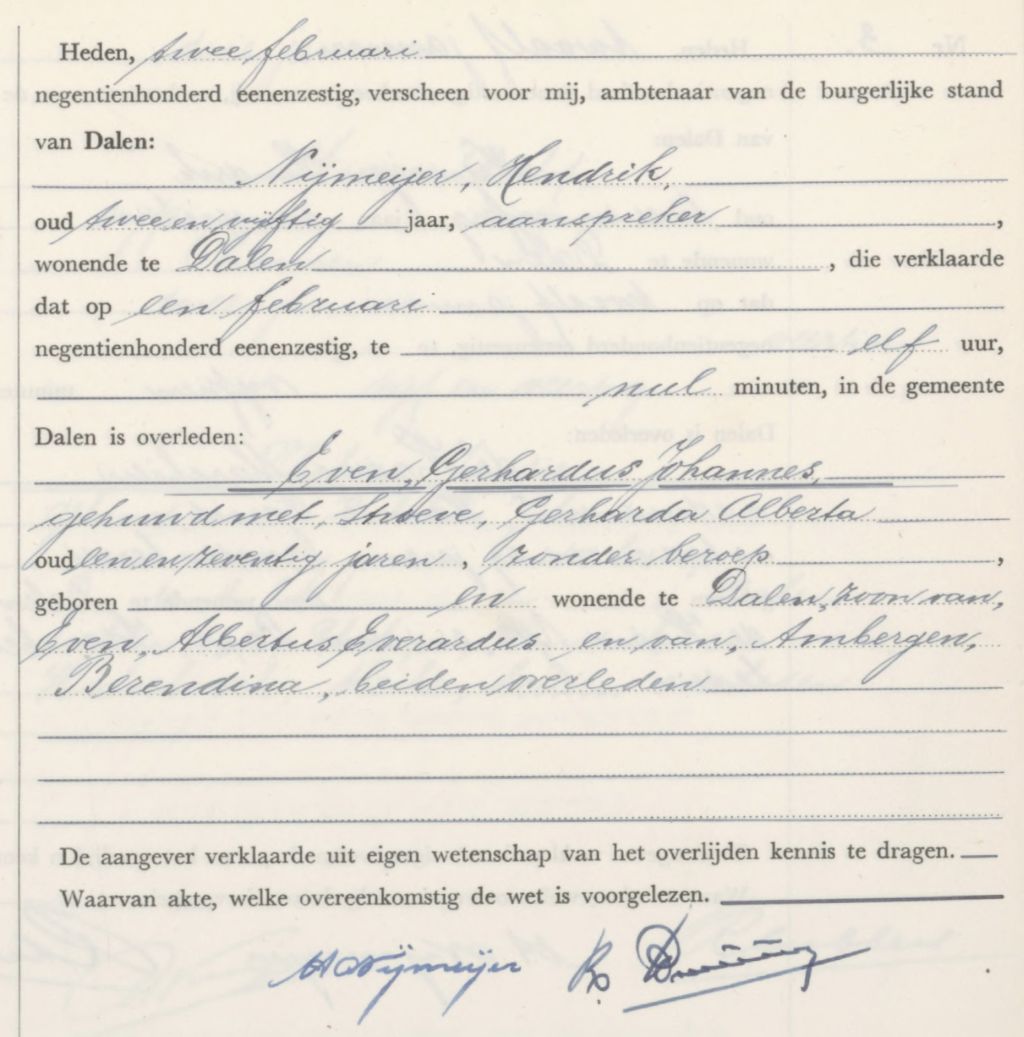 Heden, twee februari
negentienhonderd eenenzestig, verscheen voor mij, ambtenaar van de burgerlijke stand
van Dalen:
Nijmeijer, Hendrik,
oud twee en vijftig jaar, aanspreker ,
wonende te Dalen , die verklaarde
dat op een februari
negentienhonderd eenenzestig, te elf uur,
nul minuten, in de gemeente
Dalen is overleden:
Even, Gerhardus Johannes,
gehuwd met, Stroeve, Gerharda Alberta
oud een en zeventig jaren , zonder beroep ,
geboren en wonende te Dalen, zoon van,
Even, Albertus Everardus en van, Ambergen,
Berendina, beiden overleden
De aangever verklaarde uit eigen wetenschap van het overlijden kennis te dragen.
Waarvan akte, welke overeenkomstig de wet is voorgelezen.
H Nijmeijer